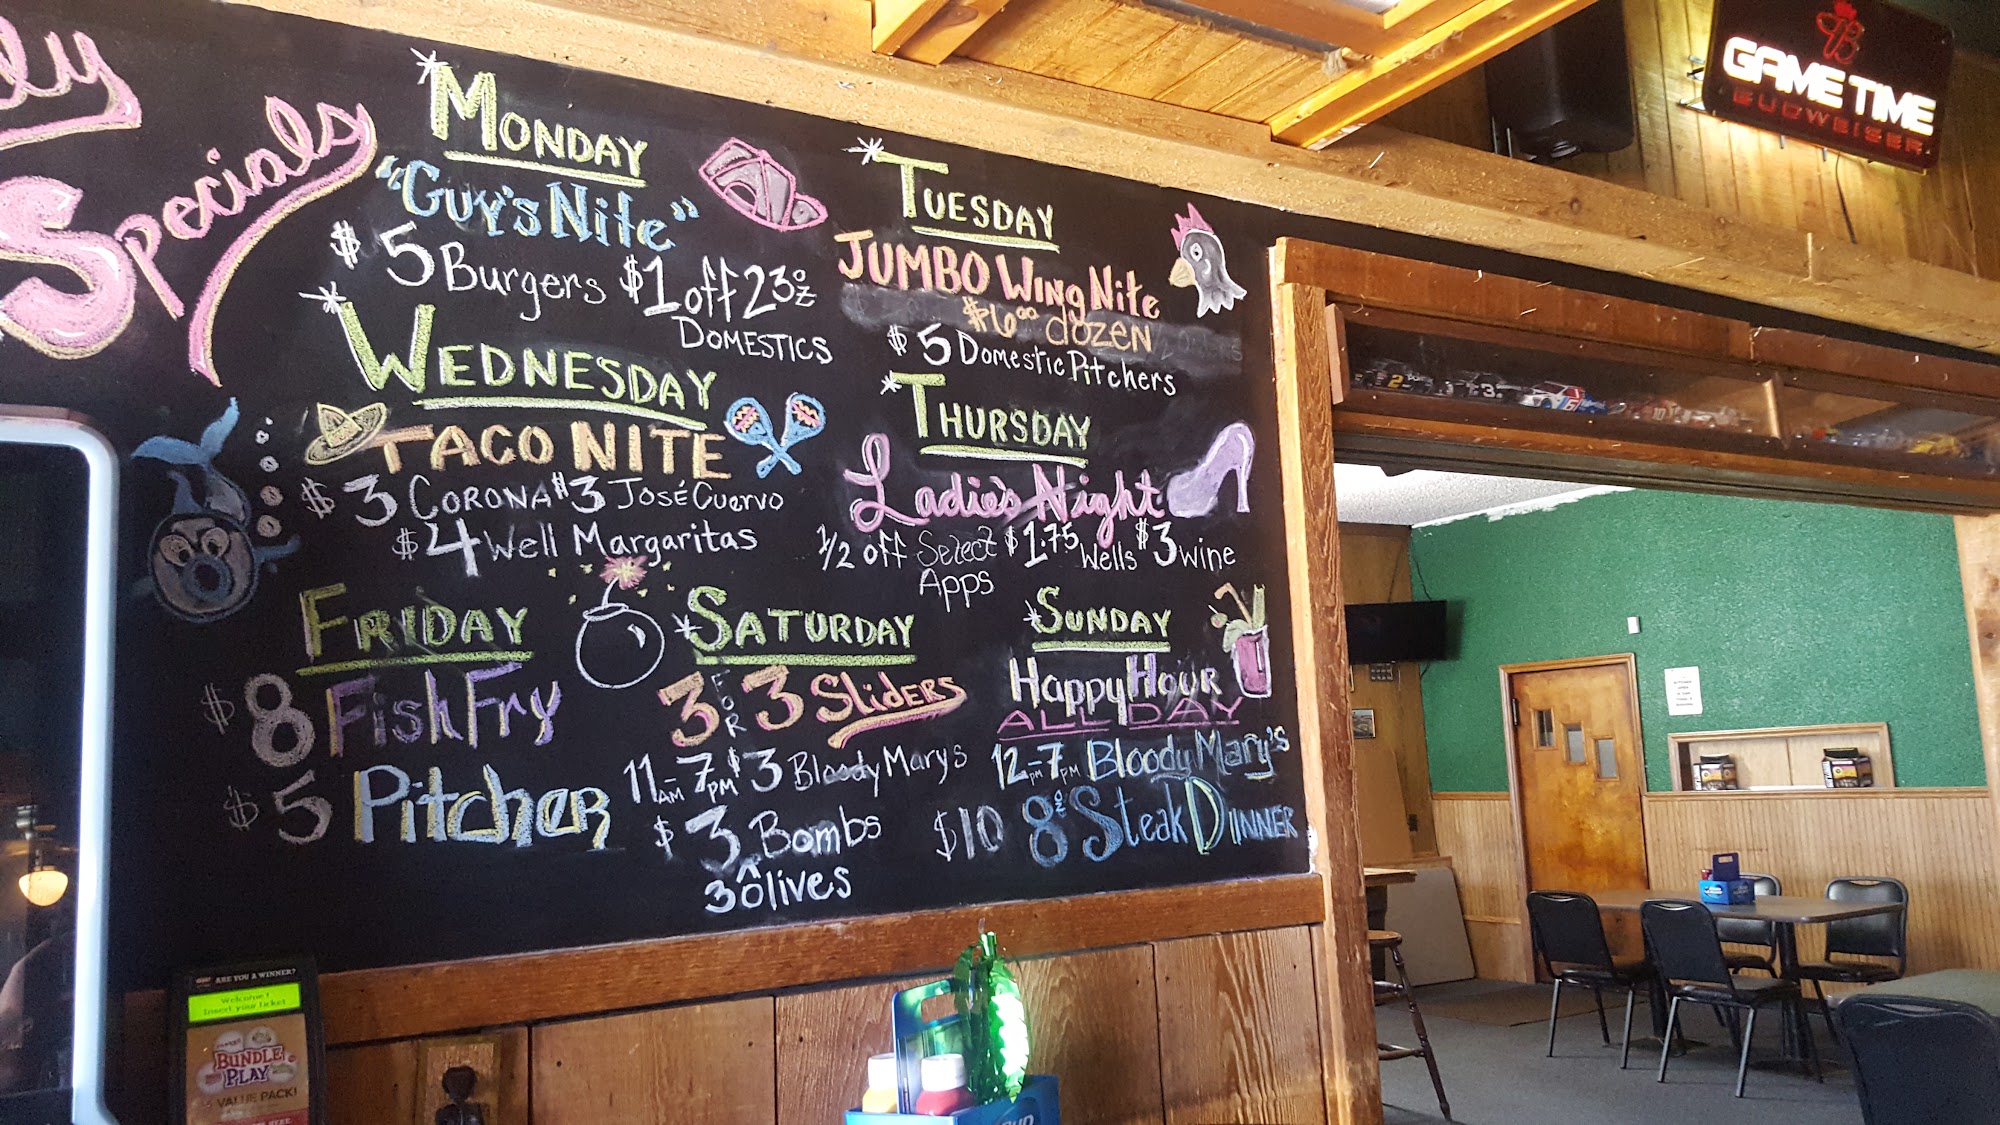 ly
Specials
MONDAY
"GUY'S Nite"
$5 Burgers $1 off 23oz
DOMESTICS
TUESDAY
JUMBO WingNite
$6.00 dozen
$5 Domestic Pitchers
WEDNESDAY
TACO NITE
$3 CORONA $3 JOSÉ Cuervo
$4 Well Margaritas
THURSDAY
Ladie's Night
1/2 off Select $1.75 Wells $3 wine
Apps
FRIDAY
$8 FishFry
$5 Pitcher
SATURDAY
3 FOR 3 SliDERS
11AM-7PM $3 Bloody Marys
$3 Bombs
3 Olives
SUNDAY
HappyHOUR
ALL DAY
12PM-7PM Bloody Mary's
$10 8oz Steak DINNER
GAME TIME
BUDWEISER
2
3
6
ARE YOU A WINNER?
Welcome!
Insert your ticket
BUNDLE
PLAY
VALUE PACK!